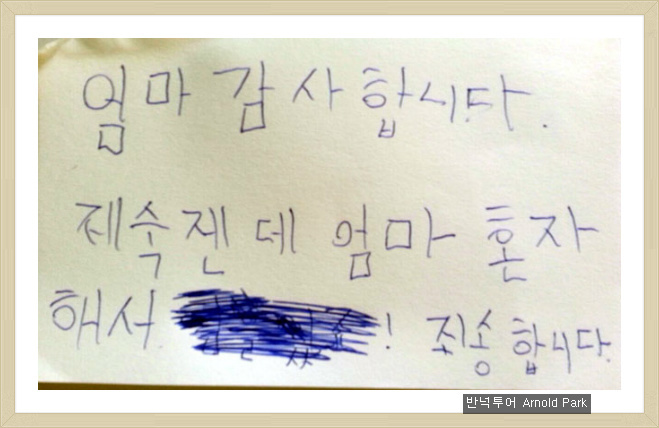 엄마 감사합니다.
제숙젠데 엄마 혼자
해서 ! 죄송합니다.
반넉투어 Arnold Park